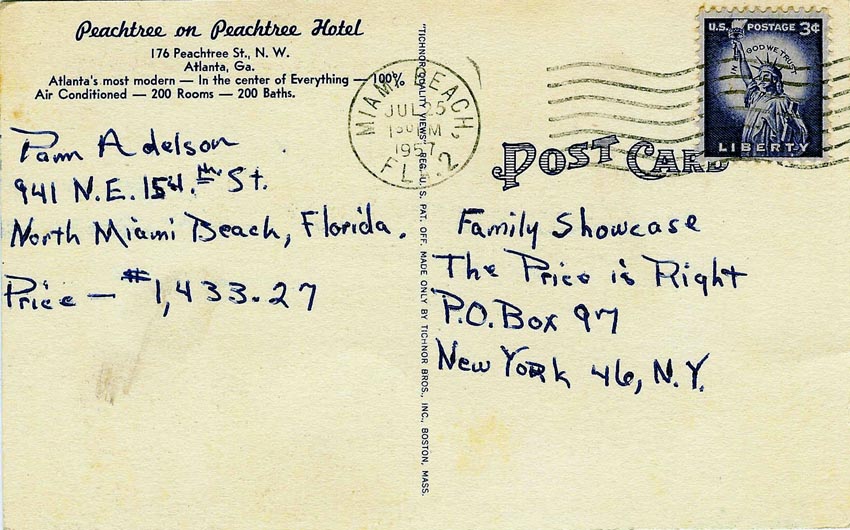 Peachtree on Peachtree Hotel
176 Peachtree St., N. W.
Atlanta, Ga.
Atlanta's most modern — In the center of Everything — 100%
Air Conditioned — 200 Rooms — 200 Baths.
Pam Adelson
941 N.E. 154.th St.
North Miami Beach, Florida.
Price — $1,433.27
"TICHNOR QUALITY VIEWS," REG. U. S. PAT. OFF. MADE ONLY BY TICHNOR BROS., INC., BOSTON, MASS.
MIAMI BEACH,
JUL 25
130 PM
1957
FLA. 2
U.S. POSTAGE 3¢
IN GOD WE TRUST
LIBERTY
POST CARD
Family Showcase
The Price is Right
P.O. Box 97
New York 46, N.Y.